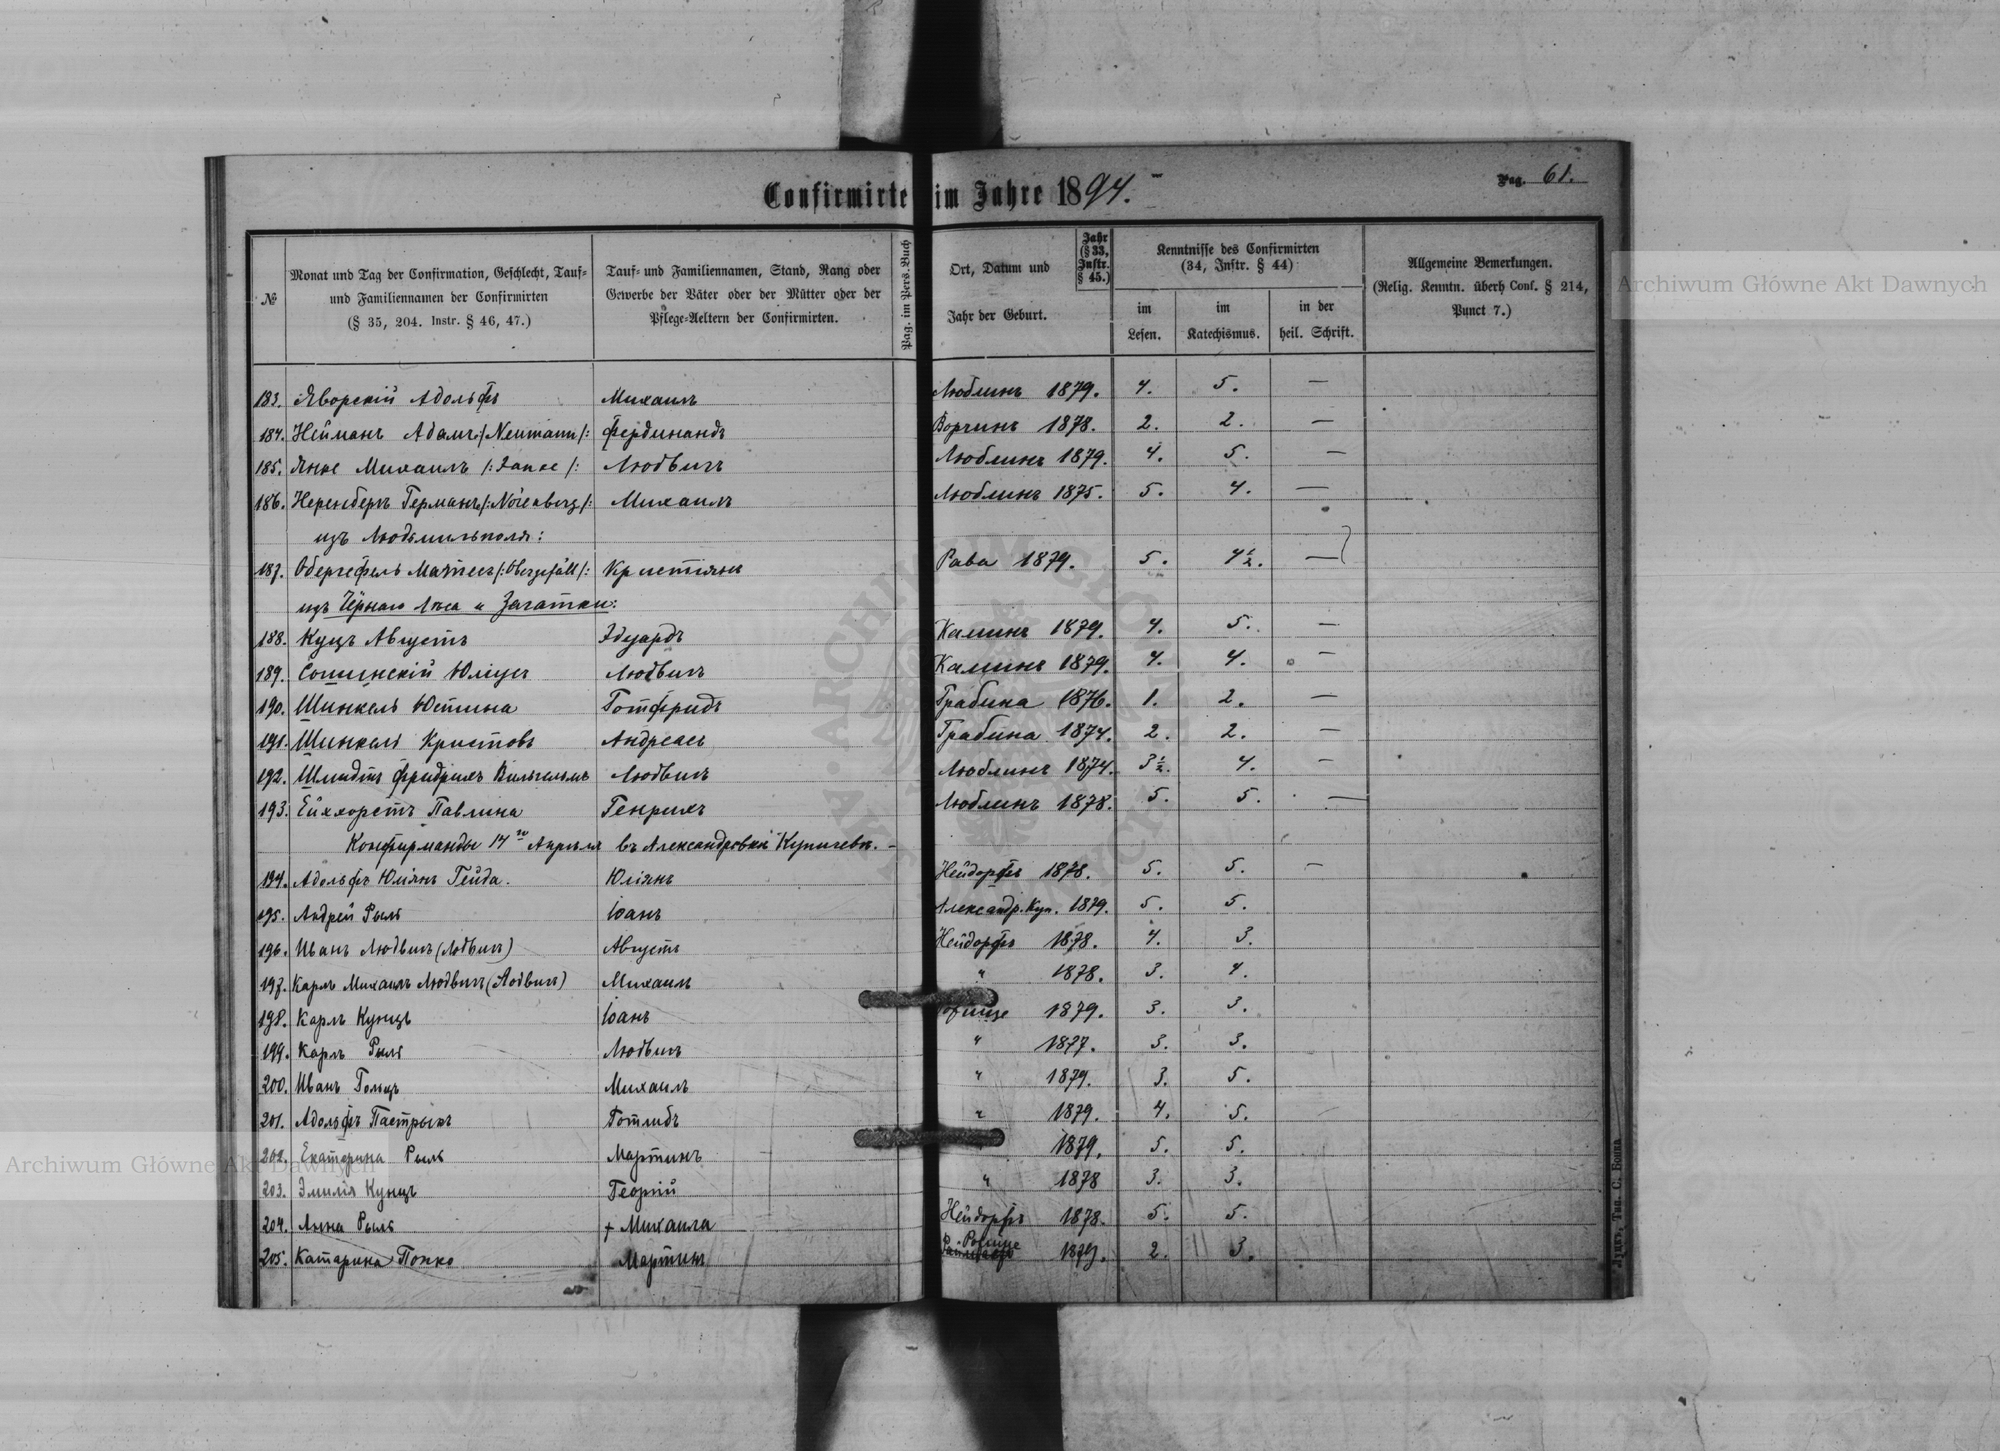 Confirmirte im Jahre 1894.
Pag. 61.
№
Monat und Tag der Confirmation, Geschlecht, Tauf-
und Familiennamen der Confirmirten
(§ 35, 204. Instr. § 46, 47.)
Tauf- und Familiennamen, Stand, Rang oder
Gewerbe der Väter oder der Mütter oder der
Pflege-Aeltern der Confirmirten.
Pag. im Pers. Buch
Ort, Datum und
Jahr der Geburt.
Jahr
(§ 33,
Instr.
§ 45.)
Kenntnisse des Confirmirten
(34, Instr. § 44)
im
Lesen.
im
Katechismus.
in der
heil. Schrift.
Allgemeine Bemerkungen.
(Relig. Kenntn. überh Conf. § 214,
Punct 7.)
183. Яворскій Адольфъ Михаилъ Люблинъ 1879. 4. 5. —
184. Нейманъ Адамъ /:Neumann/: Фердинандъ Ворчинъ 1878. 2. 2. —
185. Янке Михаилъ /:Janke/: Людвигъ Люблинъ 1879. 4. 5. —
186. Неренбергъ Германъ /:Nörenberg/: Михаилъ Люблинъ 1875. 5. 4. —
изъ Людмильполя:
187. Обергефель /:Obergefäll/: Кристіянъ Рава 1879. 5. 4½. —
изъ Чёрнаго Лѣса и Загатки:
188. Куцъ Августъ Эдуардъ Калишъ 1879. 4. 5. —
189. Юліусъ Людвигъ Калишъ 1879. 4. 4. —
190. Шинкель Юстина Готфридъ Грабина 1876. 1. 2. —
191. Шинкель Кристовъ Андреасъ Грабина 1874. 2. 2. —
192. Шмидтъ Фридрихъ Вильгельмъ Людвигъ Люблинъ 1874. 3½. 4. —
193. Ейххорстъ Павлина Генрихъ Люблинъ 1878. 5. 5. —
Конфирманды 14го Апрѣля въ Александровкѣ Купичевк. —
194. Адольфъ Юліянъ Гейда. Юліянъ Нейдорфъ 1878. 5. 5. —
195. Андрей Рыль Іоанъ Александр. Куп. 1879. 5. 5.
196. Иванъ Людвигъ (Лодвигъ) Августъ Нейдорфъ 1878. 4. 3.
197. Карлъ Михаилъ Людвигъ (Лодвигъ) Михаилъ " 1878. 3. 4.
198. Карлъ Кунцъ Іоанъ 1879. 3. 3.
199. Карлъ Рыль Людвигъ " 1877. 3. 3.
200. Иванъ Гольцъ Михаилъ " 1879. 3. 5.
201. Адольфъ Пастрыкъ Готлибъ " 1879. 4. 5.
202. Екатерина Рыль Мартинъ 1879. 5. 5.
203. Эмилія Кунцъ Георгій " 1878 3. 3.
204. Анна Рыль † Михаила Нейдорфъ 1878. 5. 5.
205. Катарина Попко Мартинъ Рожище 1879. 2. 3.
Луцкъ, Тип. С. Бонка
Archiwum Główne Akt Dawnych
Archiwum Główne Akt Dawnych